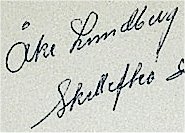 Åke Lundberg
Skellefteå